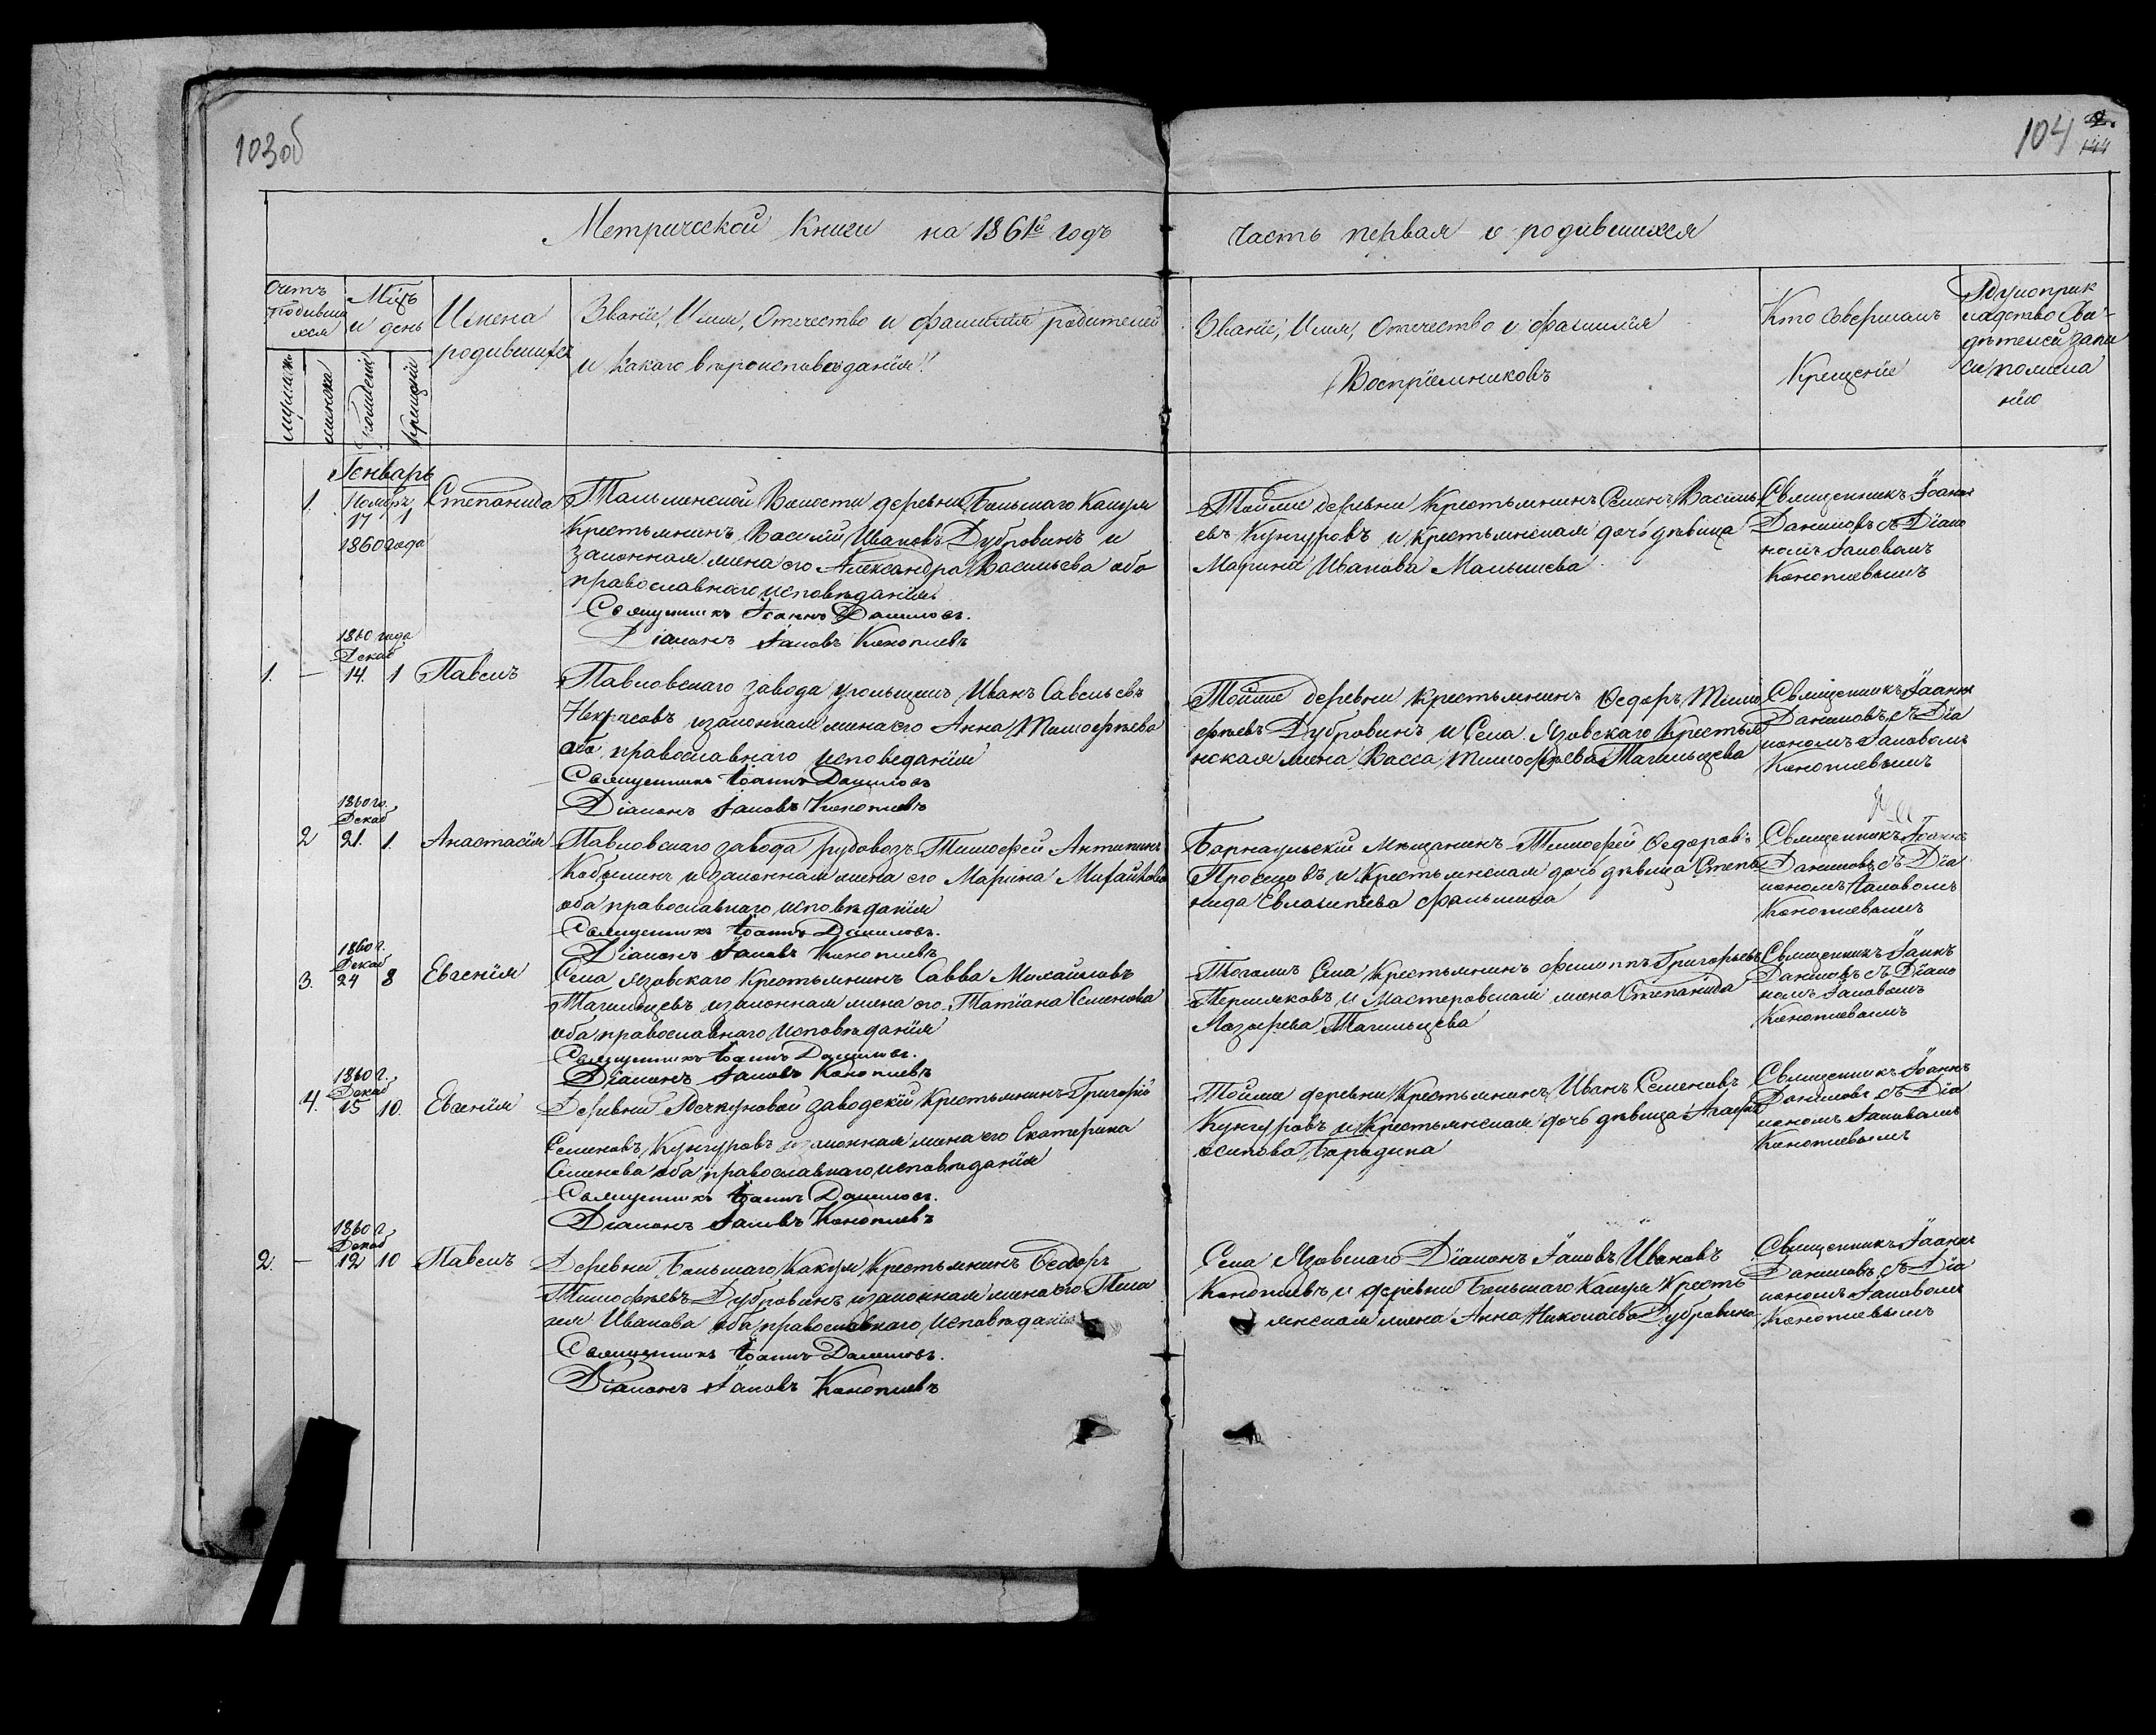 103об
104
144
Метрической книги на 1861й годъ
часть первая о родившихся
Счетъ родивши хся
Мцъ и день
Имена родившихся
Званіе, Имя, Отчество и фамилія родителей
и какого вѣроисповѣданія
Званіе, Имя, Отчество и фамилія
Воспріемниковъ
Кто совершалъ
Крещеніе
Рукоприк
ладство сви-
дѣтелей запи
си по жела
нію
мужеска
женска
рожденія
крещенія
Генварь
1. Ноябрь 17 1 1860 года Степанида
Тальменской Волости деревни Большаго Калтая
Крестьянинъ Василій Ивановъ Дубровинъ и
законная жена его Александра Васильева оба
православнаго исповѣданія
Священникъ Іоаннъ Даниловъ.
Діаконъ Іаковъ Коноплевъ
Тойже деревни Крестьянинъ Семенъ Василь
евъ Кунгуровъ и крестьянская дочь дѣвица
Марина Иванова Малышева
Священникъ Іоаннъ
Даниловъ съ Діако
номъ Іаковомъ
Коноплевымъ
1860 года
Декаб
1. — 14. 1 Павелъ
Павловскаго завода угольщикъ Иванъ Савельевъ
Некрасовъ и законная жена его Анна Тимофѣева
оба православнаго исповеданія
Священникъ Іоаннъ Даниловъ
Діаконъ Іаковъ Коноплевъ
Тойже деревни крестьянинъ Ѳедоръ Тимо
фѣевъ Дубровинъ и Села Язовскаго Крестья
нская жена Васса Тимофѣева Тагильцева
Священникъ Іоаннъ
Даниловъ съ Діа
кономъ Іаковомъ
Коноплевымъ
1860 го.
Декаб
2 21. 1. Анастасія
Павловскаго завода рудовозъ Тимофей Антипинъ
Кобылинъ и законная жена его Марина Михайлова
оба православнаго исповѣданія
Священникъ Іоаннъ Даниловъ.
Діаконъ Іаковъ Коноплевъ
Барнаульскій Мѣщанинъ Тимофей Ѳедоровъ
и крестьянская дочь дѣвица Степа
нида Евлампіева
Священникъ Іоаннъ
Даниловъ съ Діа
кономъ Іаковомъ
Коноплевымъ
1860 г.
Декаб
3. 24 8 Евгенія
Села Язовскаго Крестьянинъ Савва Михайловъ
Тагильцевъ и законная жена его Татіана Семенова
оба православнаго исповѣданія
Священникъ Іоаннъ Даниловъ.
Діаконъ Іаковъ Коноплевъ
Тогожъ Села Крестьянинъ Филиппъ Григорьевъ
Пермяковъ и Мастеровская жена Степанида
Лазарева Тагильцева
Священникъ Іоаннъ
Даниловъ съ Діако
номъ Іаковомъ
Коноплевымъ
1860 г.
Декаб
4. 15 10. Евгенія
Деревни заводскій Крестьянинъ Григорій
Семеновъ Кунгуровъ и законная жена его Екатерина
Семенова оба православнаго исповѣданія
Священникъ Іоаннъ Даниловъ.
Діаконъ Іаковъ Коноплевъ
Тойже деревни Крестьянинъ Иванъ Семеновъ
Кунгуровъ и Крестьянская дочь дѣвица Агафья
осипова
Священникъ Іоаннъ
Даниловъ съ Діа
кономъ Іаковомъ
Коноплевымъ
1860 г
Декаб
2. — 12 10 Павелъ
Деревни Большаго Калтая Крестьянинъ Ѳеодоръ
Тимофѣевъ Дубровинъ и законная жена его Пела
гея Иванова оба православнаго исповѣданія
Священникъ Іоаннъ Даниловъ.
Діаконъ Іаковъ Коноплевъ
Села Язовскаго Діаконъ Іаковъ Ивановъ
Коноплевъ и деревни Большаго Калтая Кресть
янская жена Анна Николаева Дубровина
Священникъ Іоаннъ
Даниловъ съ Діа
кономъ Іаковомъ
Коноплевымъ